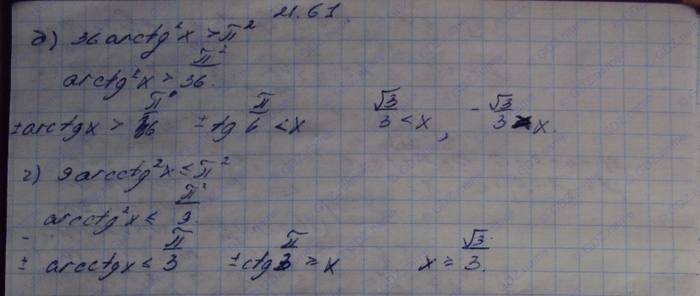 21.61.
д) 36 arctg²x > π²
arctg²x > π²/36.
± arctg x > π/6 ± tg π/6 < x √3/3 < x, -√3/3 x.
г) 9 arcctg²x ≤ π²
arcctg²x ≤ π²/9.
± arcctg x ≤ π/3 ± ctg π/3 ≥ x x ≥ √3/3.